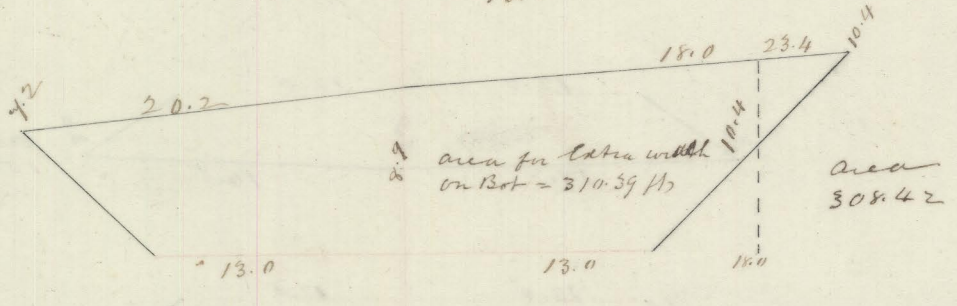 7.2
20.2
18.0
23.4
10.4
10.4
area for Extra width
on Bot = 310.39 ft
area
308.42
13.0
13.0
18.0